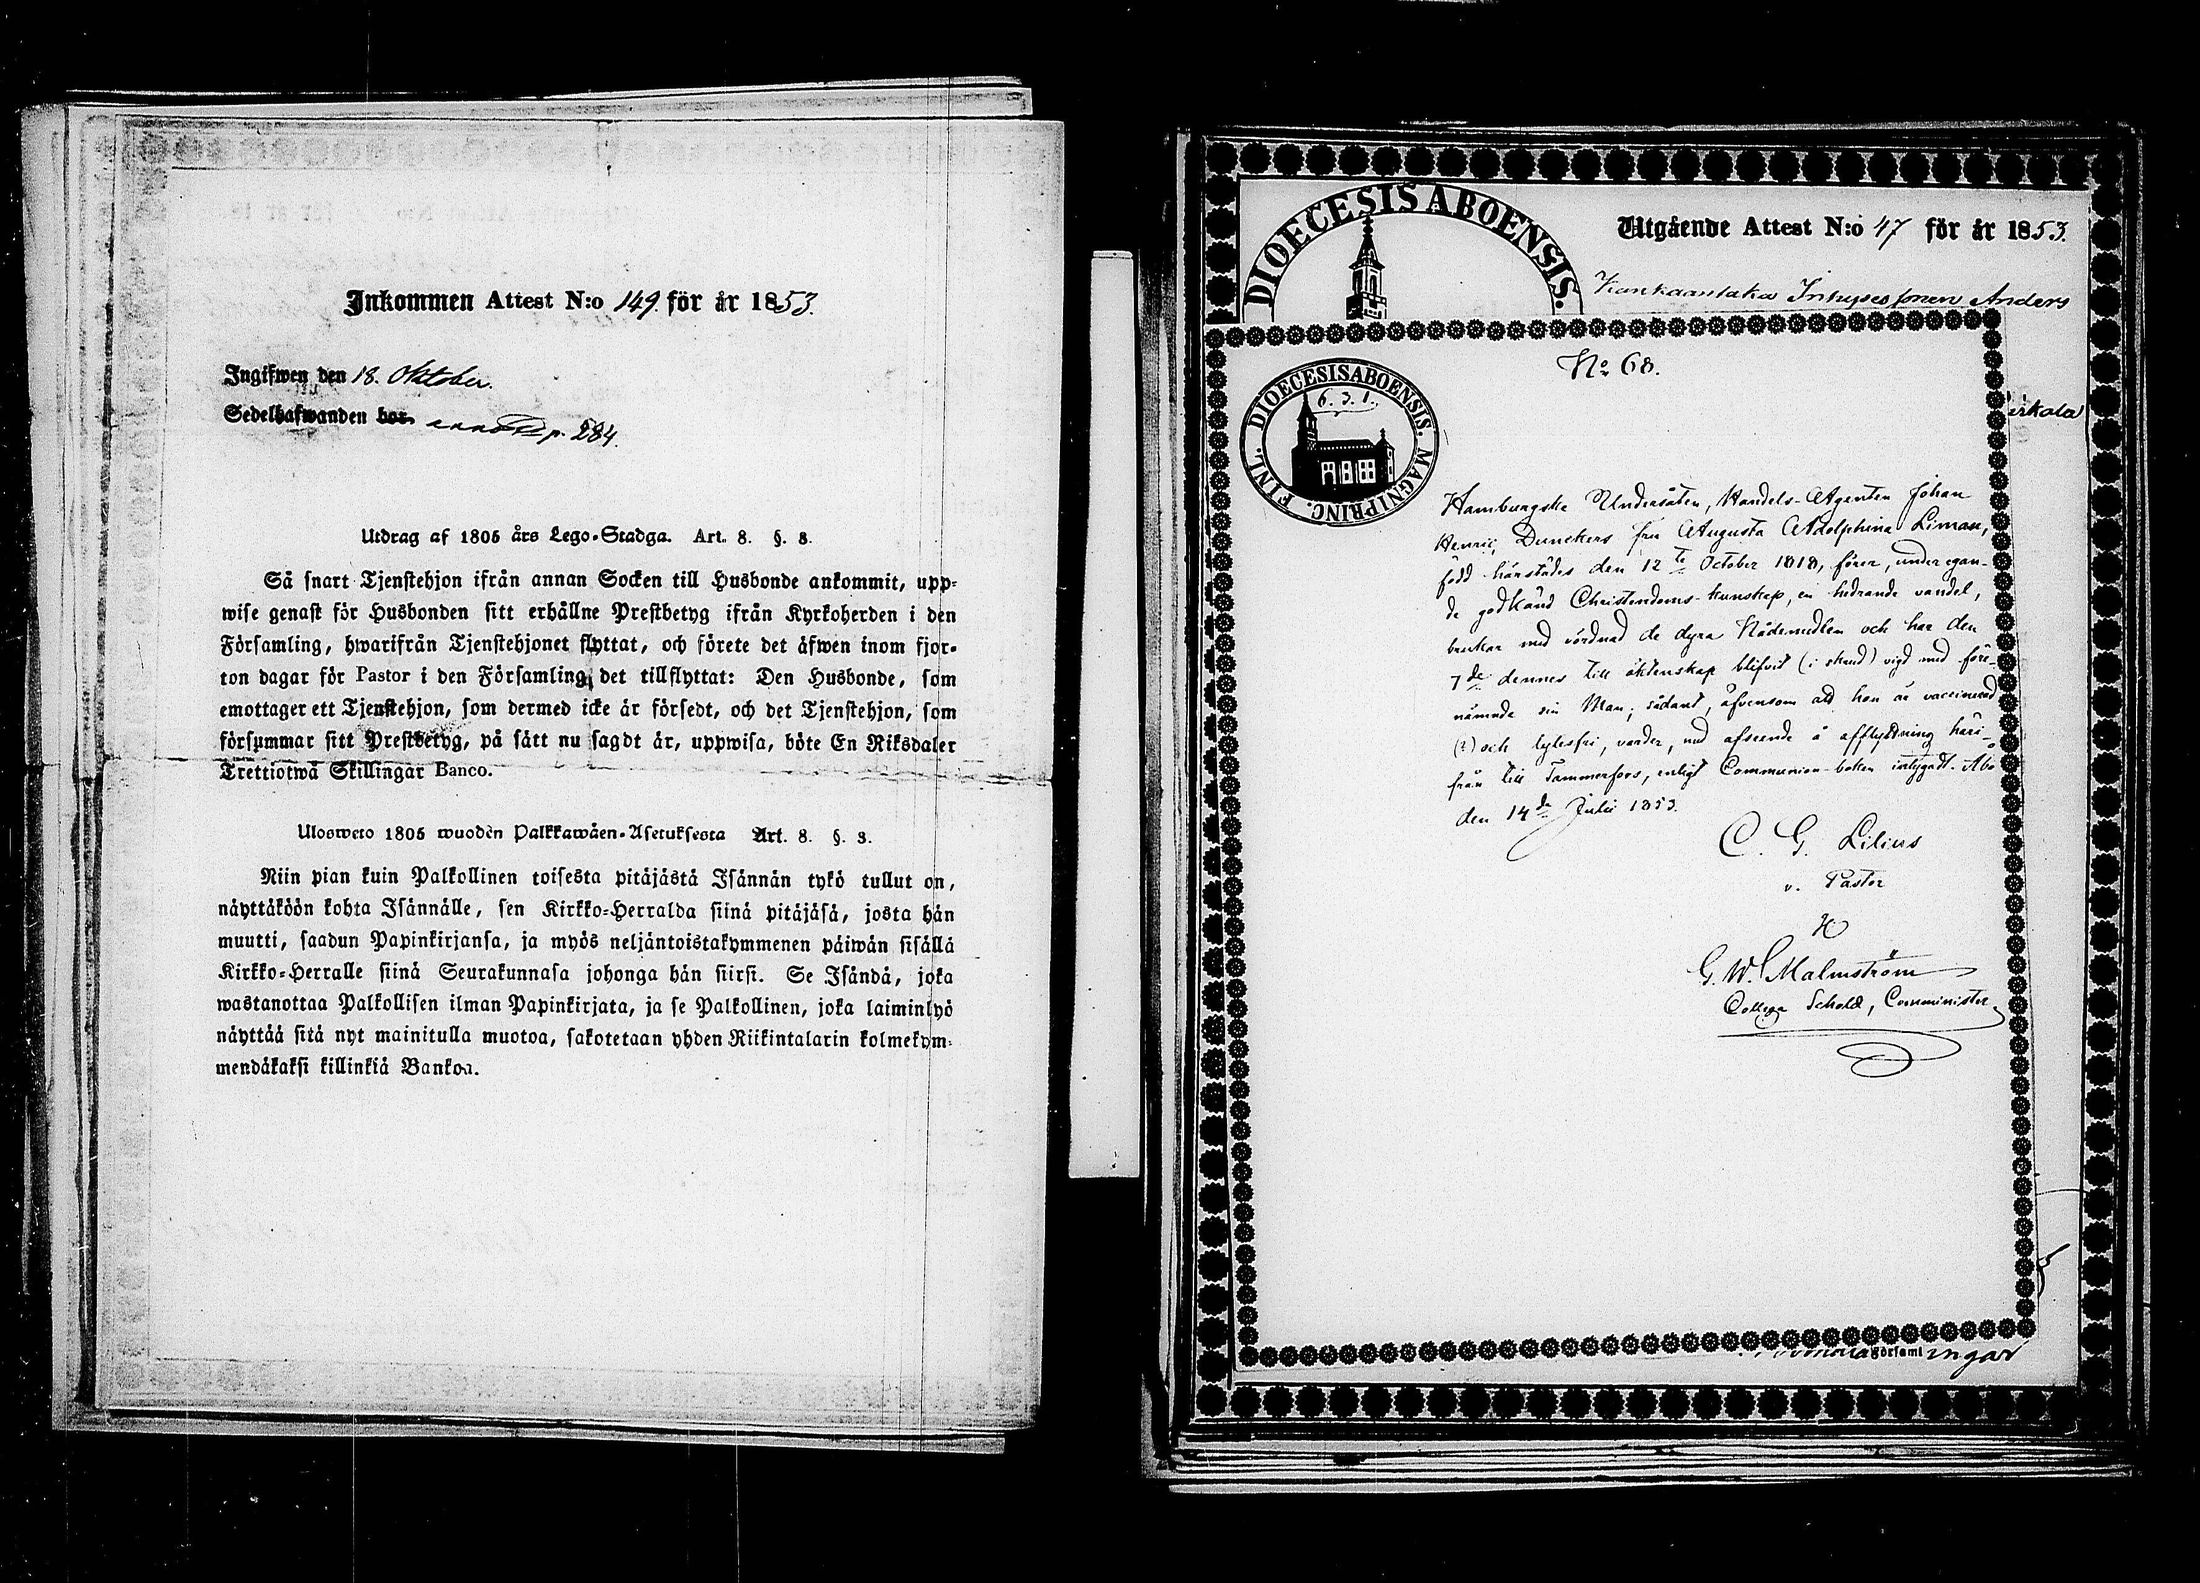 Inkommen Attest N:o 149. för år 1853.
Ingifwen den 18. Oktober.
Sedelhafwanden bor. annot. p. 284.
Utdrag af 1805 års Lego-Stadga. Art. 8. §. 3.
Så snart Tjenstehjon ifrån annan Socken till Husbonde ankommit, upp-
wise genast för Husbonden sitt erhållne Prestbetyg ifrån Kyrkoherden i den
Församling, hwarifrån Tjenstehjonet flyttat, och förete det äfwen inom fjor-
ton dagar för Pastor i den Församling, det tillflyttat: Den Husbonde, som
emottager ett Tjenstehjon, som dermed icke är försedt, och det Tjenstehjon, som
försummar sitt Prestbetyg, på sätt nu sagdt är, uppwisa, böte En Riksdaler
Trettiotwå Skillingar Banco.
Ulosweto 1805 wuoden Palkkawäen-Asetuksesta Art. 8. §. 3.
Niin pian kuin Palkollinen toisesta pitäjästä Isännän tykö tullut on,
näyttäköön kohta Isännälle, sen Kirkko-Herralda siinä pitäjäsä, josta hän
muutti, saadun Papinkirjansa, ja myös neljäntoistakymmenen päiwän sisällä
Kirkko-Herralle siinä Seurakunnasa johonga hän siirsi. Se Isändä, joka
wastanottaa Palkollisen ilman Papinkirjata, ja se Palkollinen, joka laiminlyö
näyttää sitä nyt mainitulla muotoa, sakotetaan yhden Riikintalarin kolmekym-
mendäkaksi killinkiä Bankoa.
DIOECESIS ABOENSIS.
Utgående Attest N:o 47 för år 1853.
Kankaantaka Inhysessonen Anders
irkala
No 68.
FINL. DIOECESIS ABOENSIS. MAGNI PRINC.
6. 3. 1.
Hamburgske Undersåten, Handels-Agenten Johan
Henric Dunckers fru Augusta Adolphina Liman,
född härstädes den 12te October 1818, förer, under egan-
de godkänd Christendoms-kunskap, en hedrande vandel,
brukar med vördnad de dyra Nådemedlen och har den
7de dennes till äktenskap blifvit (i stand) vigd med före-
nämnde sin Man; sådant, äfvensom att hon är vaccinerad
(?) och lytesfri, varder, med afseende å afflyttning häri-
från till Tammerfors, enligt Communion-boken intygadt. Åbo
den 14de Julii 1853.
C. G. Lilius
v. Pastor
G. W. Malmström
Collega Scholæ, Comminister
Församl ingar